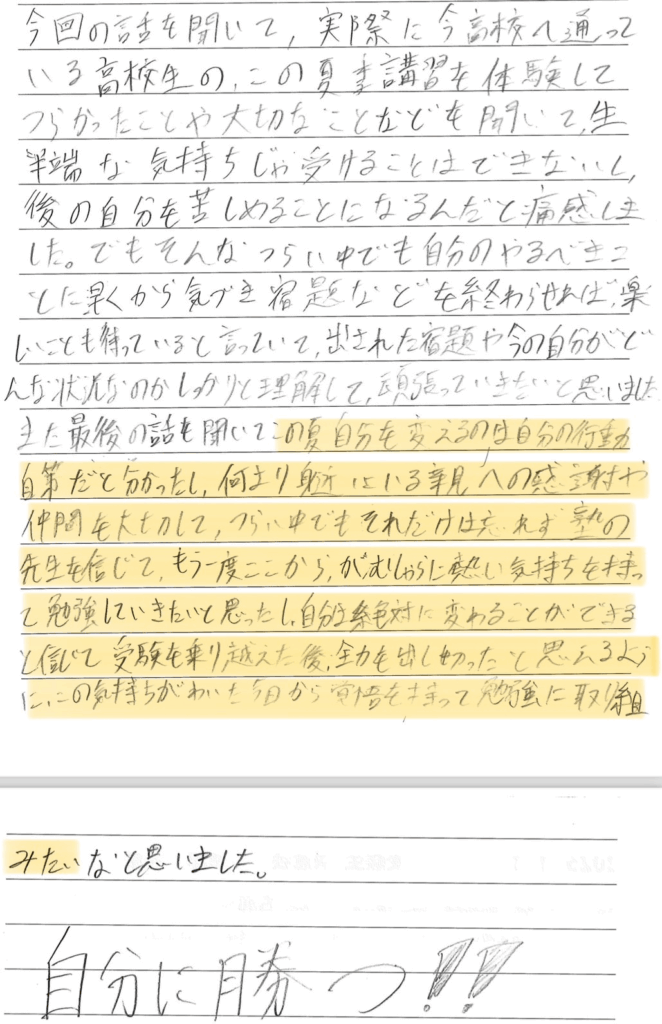 今回の話を聞いて、実際に今高校へ通って
いる高校生の、この夏季講習を体験して
つらかったことや大切なことなどを聞いて、生
半端な気持ちじゃ受けることはできないし、
後の自分を苦しめることになるんだと痛感しま
した。でもそんなつらい中でも自分のやるべきこ
とに早くから気づき宿題などを終わらせれば、楽
しいことも待っていると言っていて、出された宿題や今の自分がど
んな状況なのかしっかりと理解して、頑張っていきたいと思いました
また最後の話を聞いてこの夏自分を変えるのは自分の行動
自第だと分かったし、何より身近にいる親への感謝や
仲間を大切して、つらい中でもそれだけは忘れず塾の
先生を信じて、もう一度ここから、がむしゃらに熱い気持ちを持っ
て勉強していきたいと思ったし、自分は絶対に変わることができる
と信じて受験を乗り越えた後、全力を出し切ったと思えるよう
に、この気持ちがわいた今日から覚悟を持って勉強に取り組
みたいなと思いました。
自分に勝つ!!